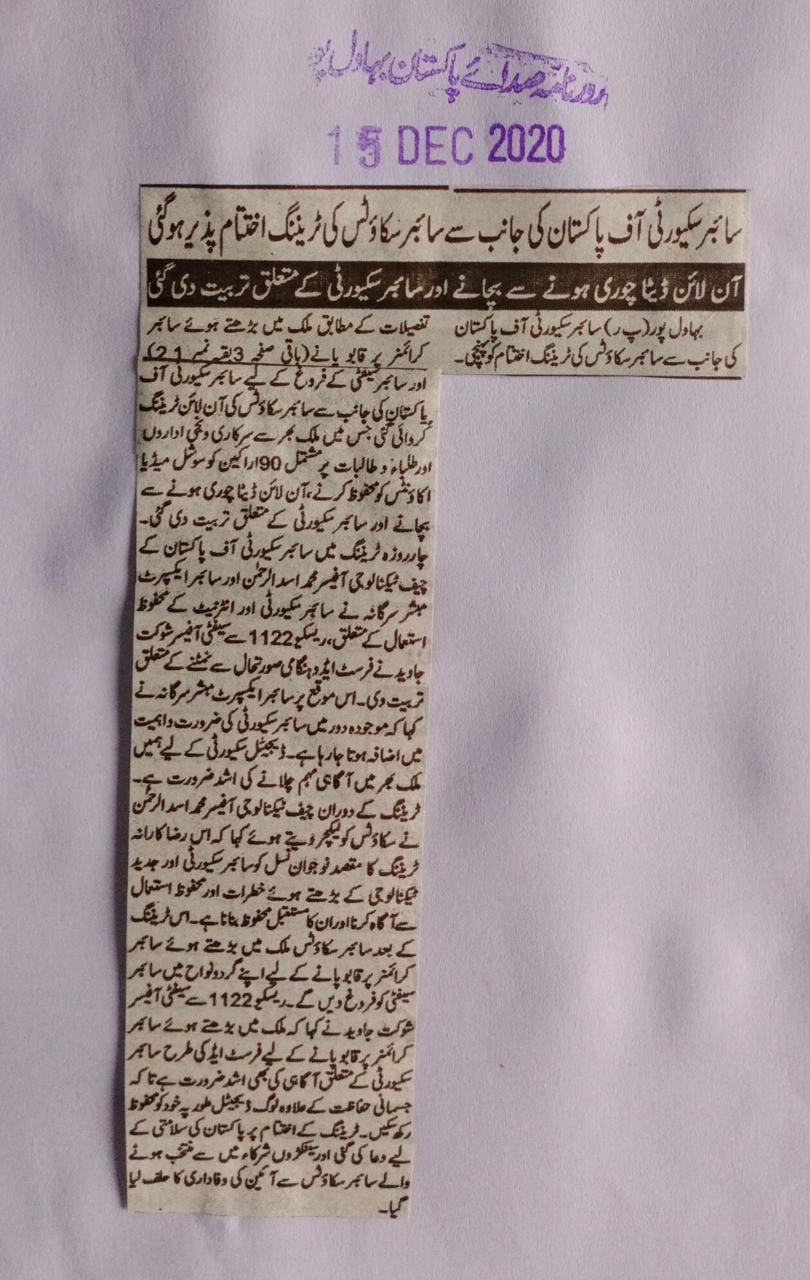 روزنامہ صدائے پاکستان بہاول پور
15 DEC 2020
سائبر سکیورٹی آف پاکستان کی جانب سے سائبر سکاؤٹس کی ٹریننگ اختتام پذیر ہوگئی
آن لائن ڈیٹا چوری ہونے سے بچانے اور سائبر سکیورٹی کے متعلق تربیت دی گئی
بہاول پور(پ ر) سائبر سکیورٹی آف پاکستان
کی جانب سے سائبر سکاؤٹس کی ٹریننگ اختتام کو پہنچی۔
تفصیلات کے مطابق ملک میں بڑھتے ہوئے سائبر
کرائمز پر قابو پانے (باقی صفحہ 3 بقیہ نمبر 21)
اور سائبر سیفٹی کے فروغ کے لیے سائبر سکیورٹی آف
پاکستان کی جانب سے سائبر سکاؤٹس کی آن لائن ٹریننگ
کروائی گئی جس میں ملک بھر سے سرکاری و نجی اداروں
اور طلباء و طالبات پر مشتمل 90 اراکین کو سوشل میڈیا
اکاؤنٹس کو محفوظ کرنے، آن لائن ڈیٹا چوری ہونے سے
بچانے اور سائبر سکیورٹی کے متعلق تربیت دی گئی۔
چار روزہ ٹریننگ میں سائبر سکیورٹی آف پاکستان کے
چیف ٹیکنالوجی آفیسر محمد اسد الرحمٰن اور سائبر ایکسپرٹ
مبشر سرگانہ نے سائبر سکیورٹی اور انٹرنیٹ کے محفوظ
استعمال کے متعلق، ریسکیو 1122 سے سیفٹی آفیسر شوکت
جاوید نے فرسٹ ایڈ و ہنگامی صورتحال سے نمٹنے کے متعلق
تربیت دی۔ اس موقع پر سائبر ایکسپرٹ مبشر سرگانہ نے
کہا کہ موجودہ دور میں سائبر سکیورٹی کی ضرورت و اہمیت
میں اضافہ ہوتا جا رہا ہے۔ ڈیجیٹل سکیورٹی کے لیے ہمیں
ملک بھر میں آگاہی مہم چلانے کی اشد ضرورت ہے۔
ٹریننگ کے دوران چیف ٹیکنالوجی آفیسر محمد اسد الرحمٰن
نے سکاؤٹس کو لیکچر دیتے ہوئے کہا کہ اس رضا کارانہ
ٹریننگ کا مقصد نوجوان نسل کو سائبر سکیورٹی اور جدید
ٹیکنالوجی کے بڑھتے ہوئے خطرات اور محفوظ استعمال
سے آگاہ کرنا اور ان کا مستقبل محفوظ بنانا ہے۔ اس ٹریننگ
کے بعد سائبر سکاؤٹس ملک میں بڑھتے ہوئے سائبر
کرائمز پر قابو پانے کے لیے اپنے گردونواح میں سائبر
سیفٹی کو فروغ دیں گے۔ ریسکیو 1122 سے سیفٹی آفیسر
شوکت جاوید نے کہا کہ ملک میں بڑھتے ہوئے سائبر
کرائمز پر قابو پانے کے لیے فرسٹ ایڈ کی طرح سائبر
سکیورٹی کے متعلق آگاہی کی بھی اشد ضرورت ہے تاکہ
جسمانی حفاظت کے علاوہ لوگ ڈیجیٹل طور پہ خود کو محفوظ
رکھ سکیں۔ ٹریننگ کے اختتام پر پاکستان کی سلامتی کے
لیے دعا کی گئی اور سینکڑوں شرکاء میں سے منتخب ہونے
والے سائبر سکاؤٹس سے آئین کی وفاداری کا حلف لیا
گیا۔